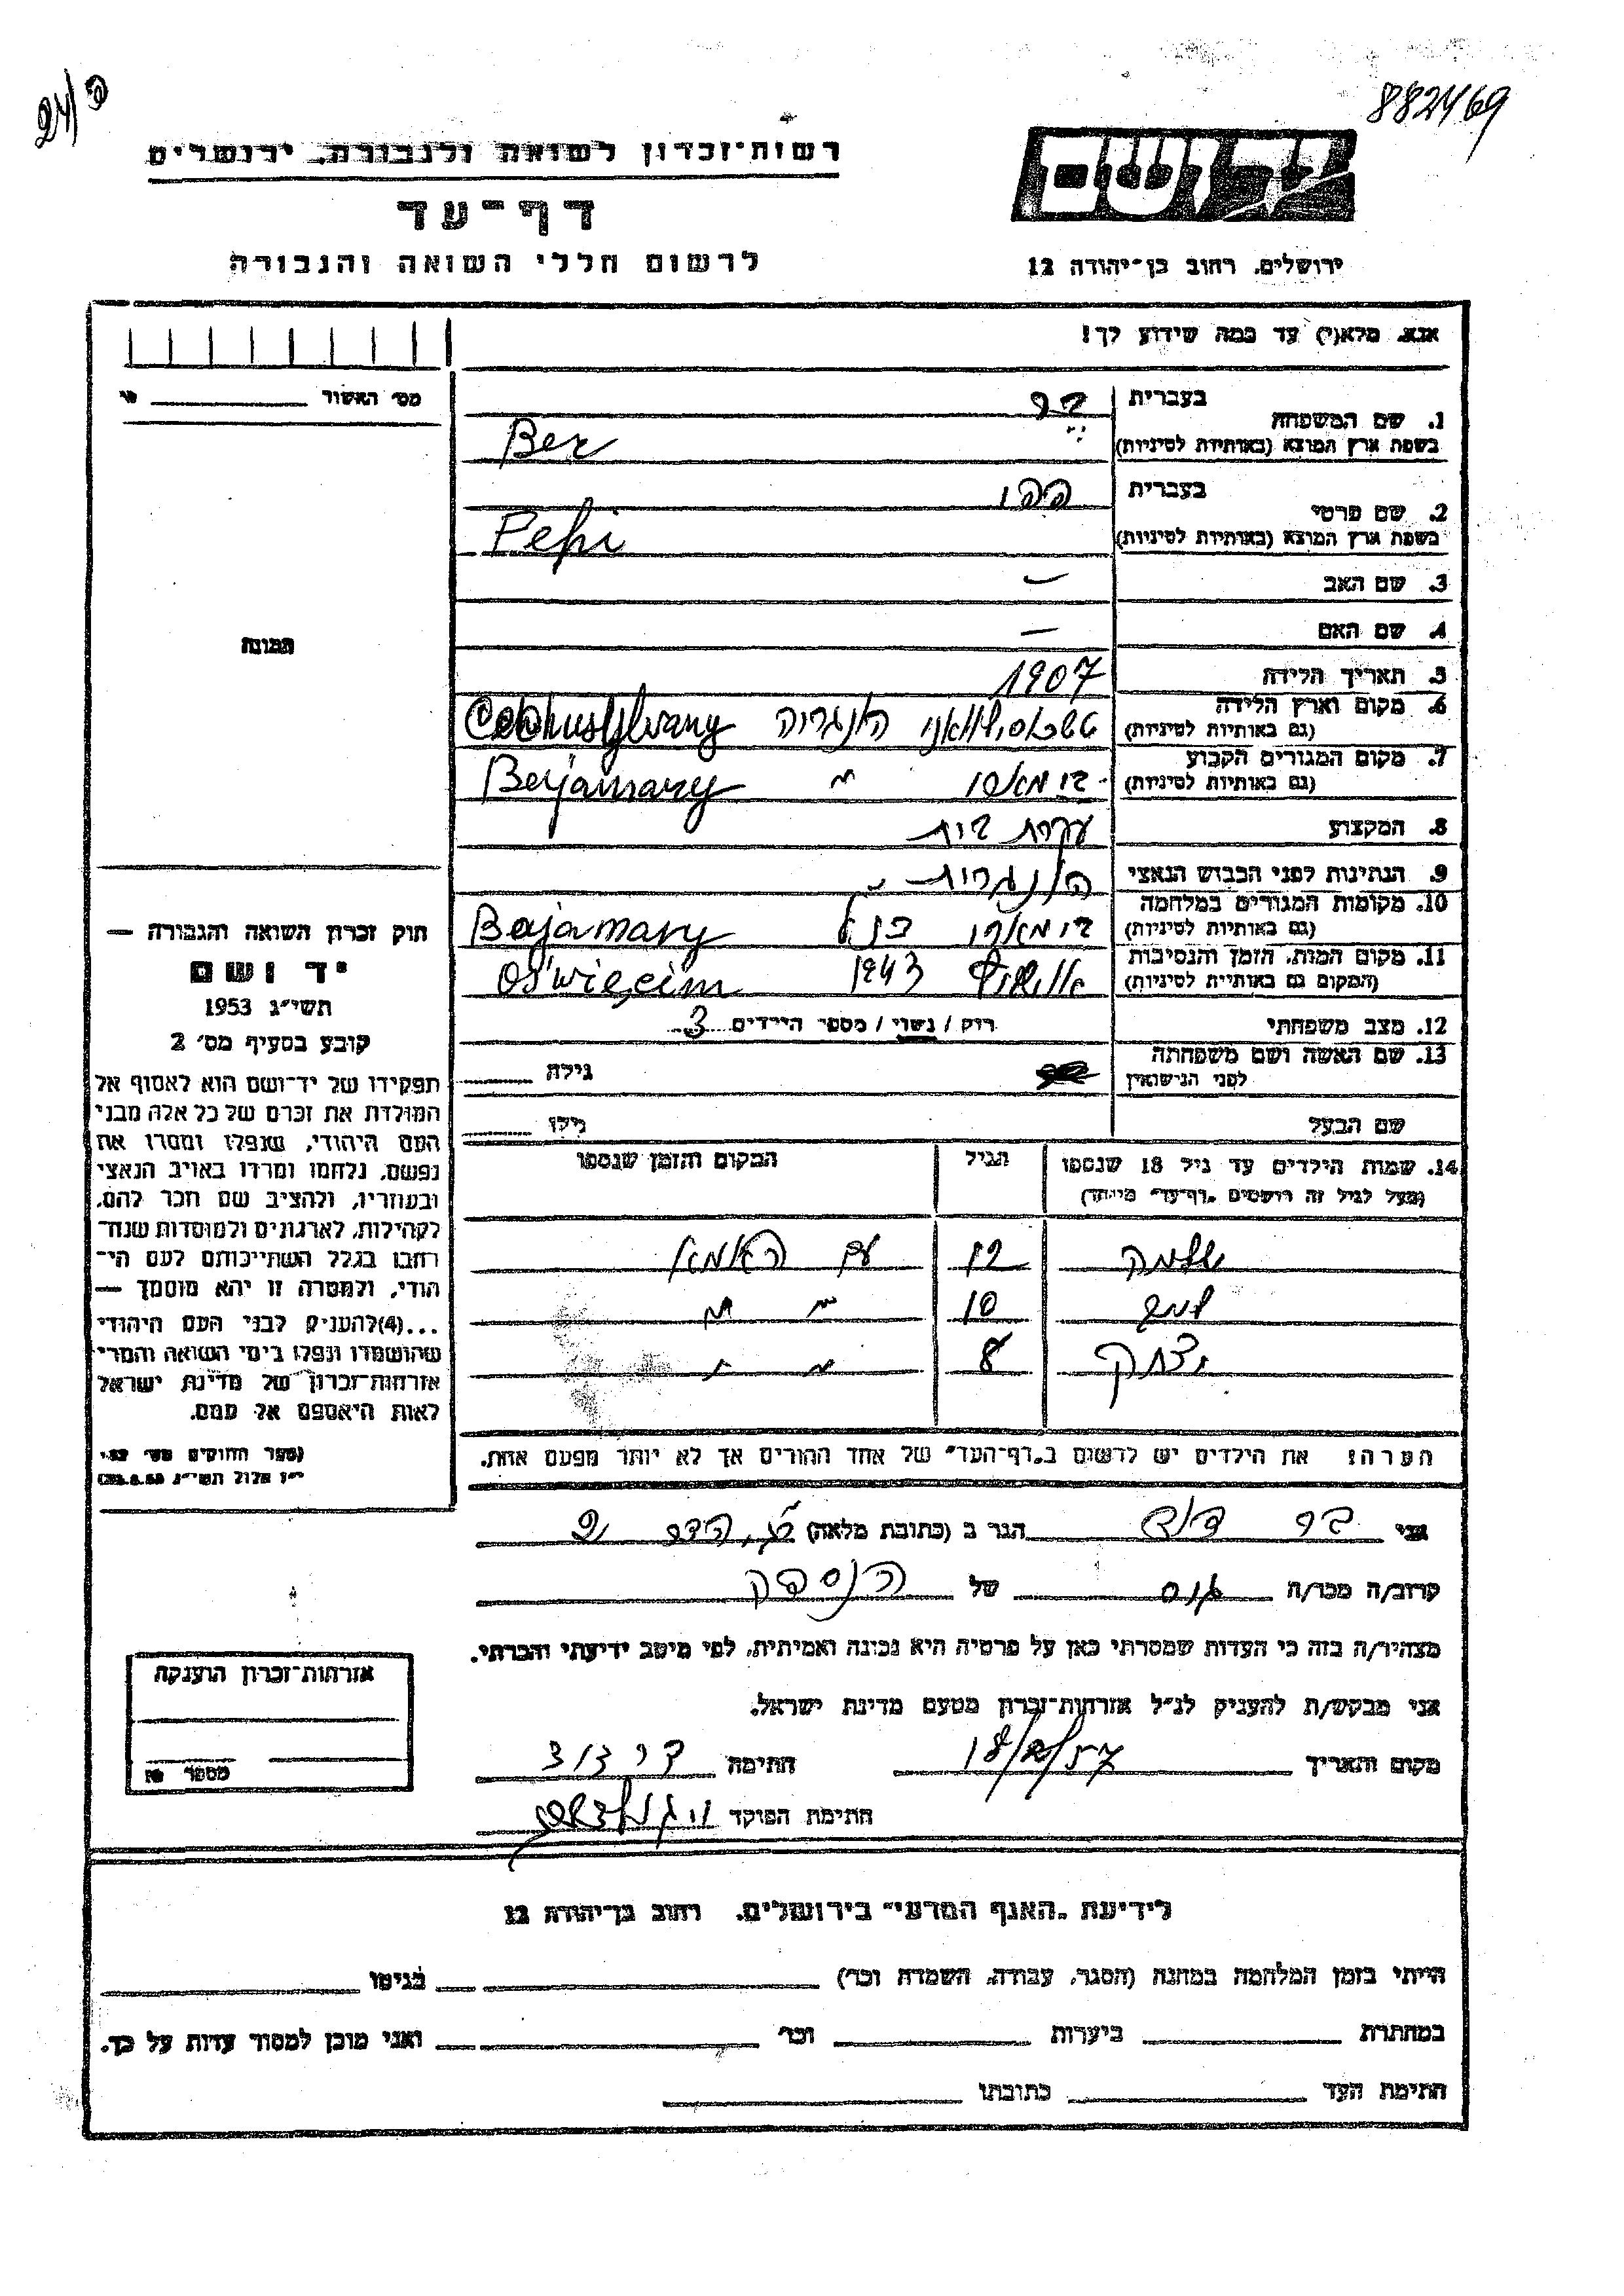 24/פ
882469
רשות־זכרון לשואה ולגבורה, ירושלים
יד ושם
דף־עד
לרשום חללי השואה והגבורה
ירושלים, רחוב בן־יהודה 12
אנא, מלא(י) עד כמה שידוע לך!
מס' האשור
1. שם המשפחה
בעברית בר
בשפת ארץ המוצא (באותיות לטיניות) Ber
2. שם פרטי
בעברית פפי
בשפת ארץ המוצא (באותיות לטיניות) Pepi
3. שם האב —
4. שם האם —
תמונה
5. תאריך הלידה 1907
6. מקום וארץ הלידה
(גם באותיות לטיניות) הונגריה
7. מקום המגורים הקבוע
(גם באותיות לטיניות) Berjamary
8. המקצוע עקרת בית
9. הנתינות לפני הכבוש הנאצי הונגרית
10. מקומות המגורים במלחמה
(גם באותיות לטיניות) Bajamary
11. מקום המות, הזמן והנסיבות
(המקום גם באותיות לטיניות) אושוויץ 1943 Oświęcim
12. מצב משפחתי רוק / נשוי / מספר הילדים 3
13. שם האשה ושם משפחתה
לפני הנישואין גילה
שם הבעל גילו
14. שמות הילדים עד גיל 18 שנספו הגיל המקום והזמן שנספו
(מעל לגיל זה רושמים "דף־עד" מיוחד)
שלמה 12 עם האמא
10 " "
יצחק 8 " "
הערה: את הילדים יש לרשום ב"דף־העד" של אחד ההורים אך לא יותר מפעם אחת.
חוק זכרון השואה והגבורה —
יד ושם
תשי"ג 1953
קובע בסעיף מס' 2
תפקידו של יד־ושם הוא לאסוף אל
המולדת את זכרם של כל אלה מבני
העם היהודי, שנפלו ומסרו את
נפשם, נלחמו ומרדו באויב הנאצי
ובעוזריו, ולהציב שם וזכר להם,
לקהילות, לארגונים ולמוסדות שנח־
רבו בגלל השתייכותם לעם הי־
הודי, ולמטרה זו יהא מוסמך —
...(4) להעניק לבני העם היהודי
שהושמדו ונפלו בימי השואה והמרי
אזרחות־זכרון של מדינת ישראל
לאות היאספם אל עמם.
(ספר החוקים מס' 132
י"ז אלול תשי"ג 28.8.53)
אני בר דוד הגר ב (כתובת מלאה)
קרוב/ה מכר/ה גיס של הנספה
מצהיר/ה בזה כי העדות שמסרתי כאן על פרטיה היא נכונה ואמיתית, לפי מיטב ידיעתי והכרתי.
אני מבקש/ת להעניק לנ"ל אזרחות־זכרון מטעם מדינת ישראל.
מקום ותאריך 18/2/57 חתימה בר דוד
חתימת הפוקד
אזרחות־זכרון הוענקה
מספר
לידיעת "האגף המדעי" בירושלים, רחוב בן־יהודה 12
הייתי בזמן המלחמה במחנה (הסגר, עבודה, השמדה וכו') בגיטו
במחתרת ביערות וכו' ואני מוכן למסור עדות על כך.
חתימת העד כתובתו